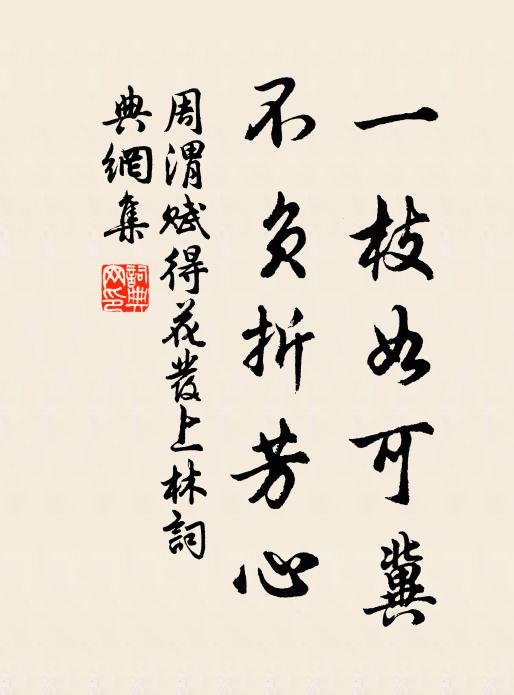 一枝如可冀
不負折芳心
周渭賦得花發上林詞
典網集
詞典
网印